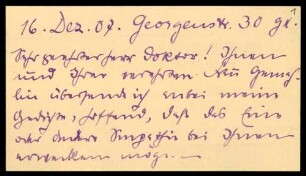 16. Dez. 07. Georgenstr. 30 gr.
Sehr geehrter Herr Doktor! Ihnen
und Ihrer verehrten Frau Gemah-
lin übersende ich anbei meine
Gedichte, hoffend, daß das Eine
oder Andere Simpathie bei Ihnen
erwecken möge. —